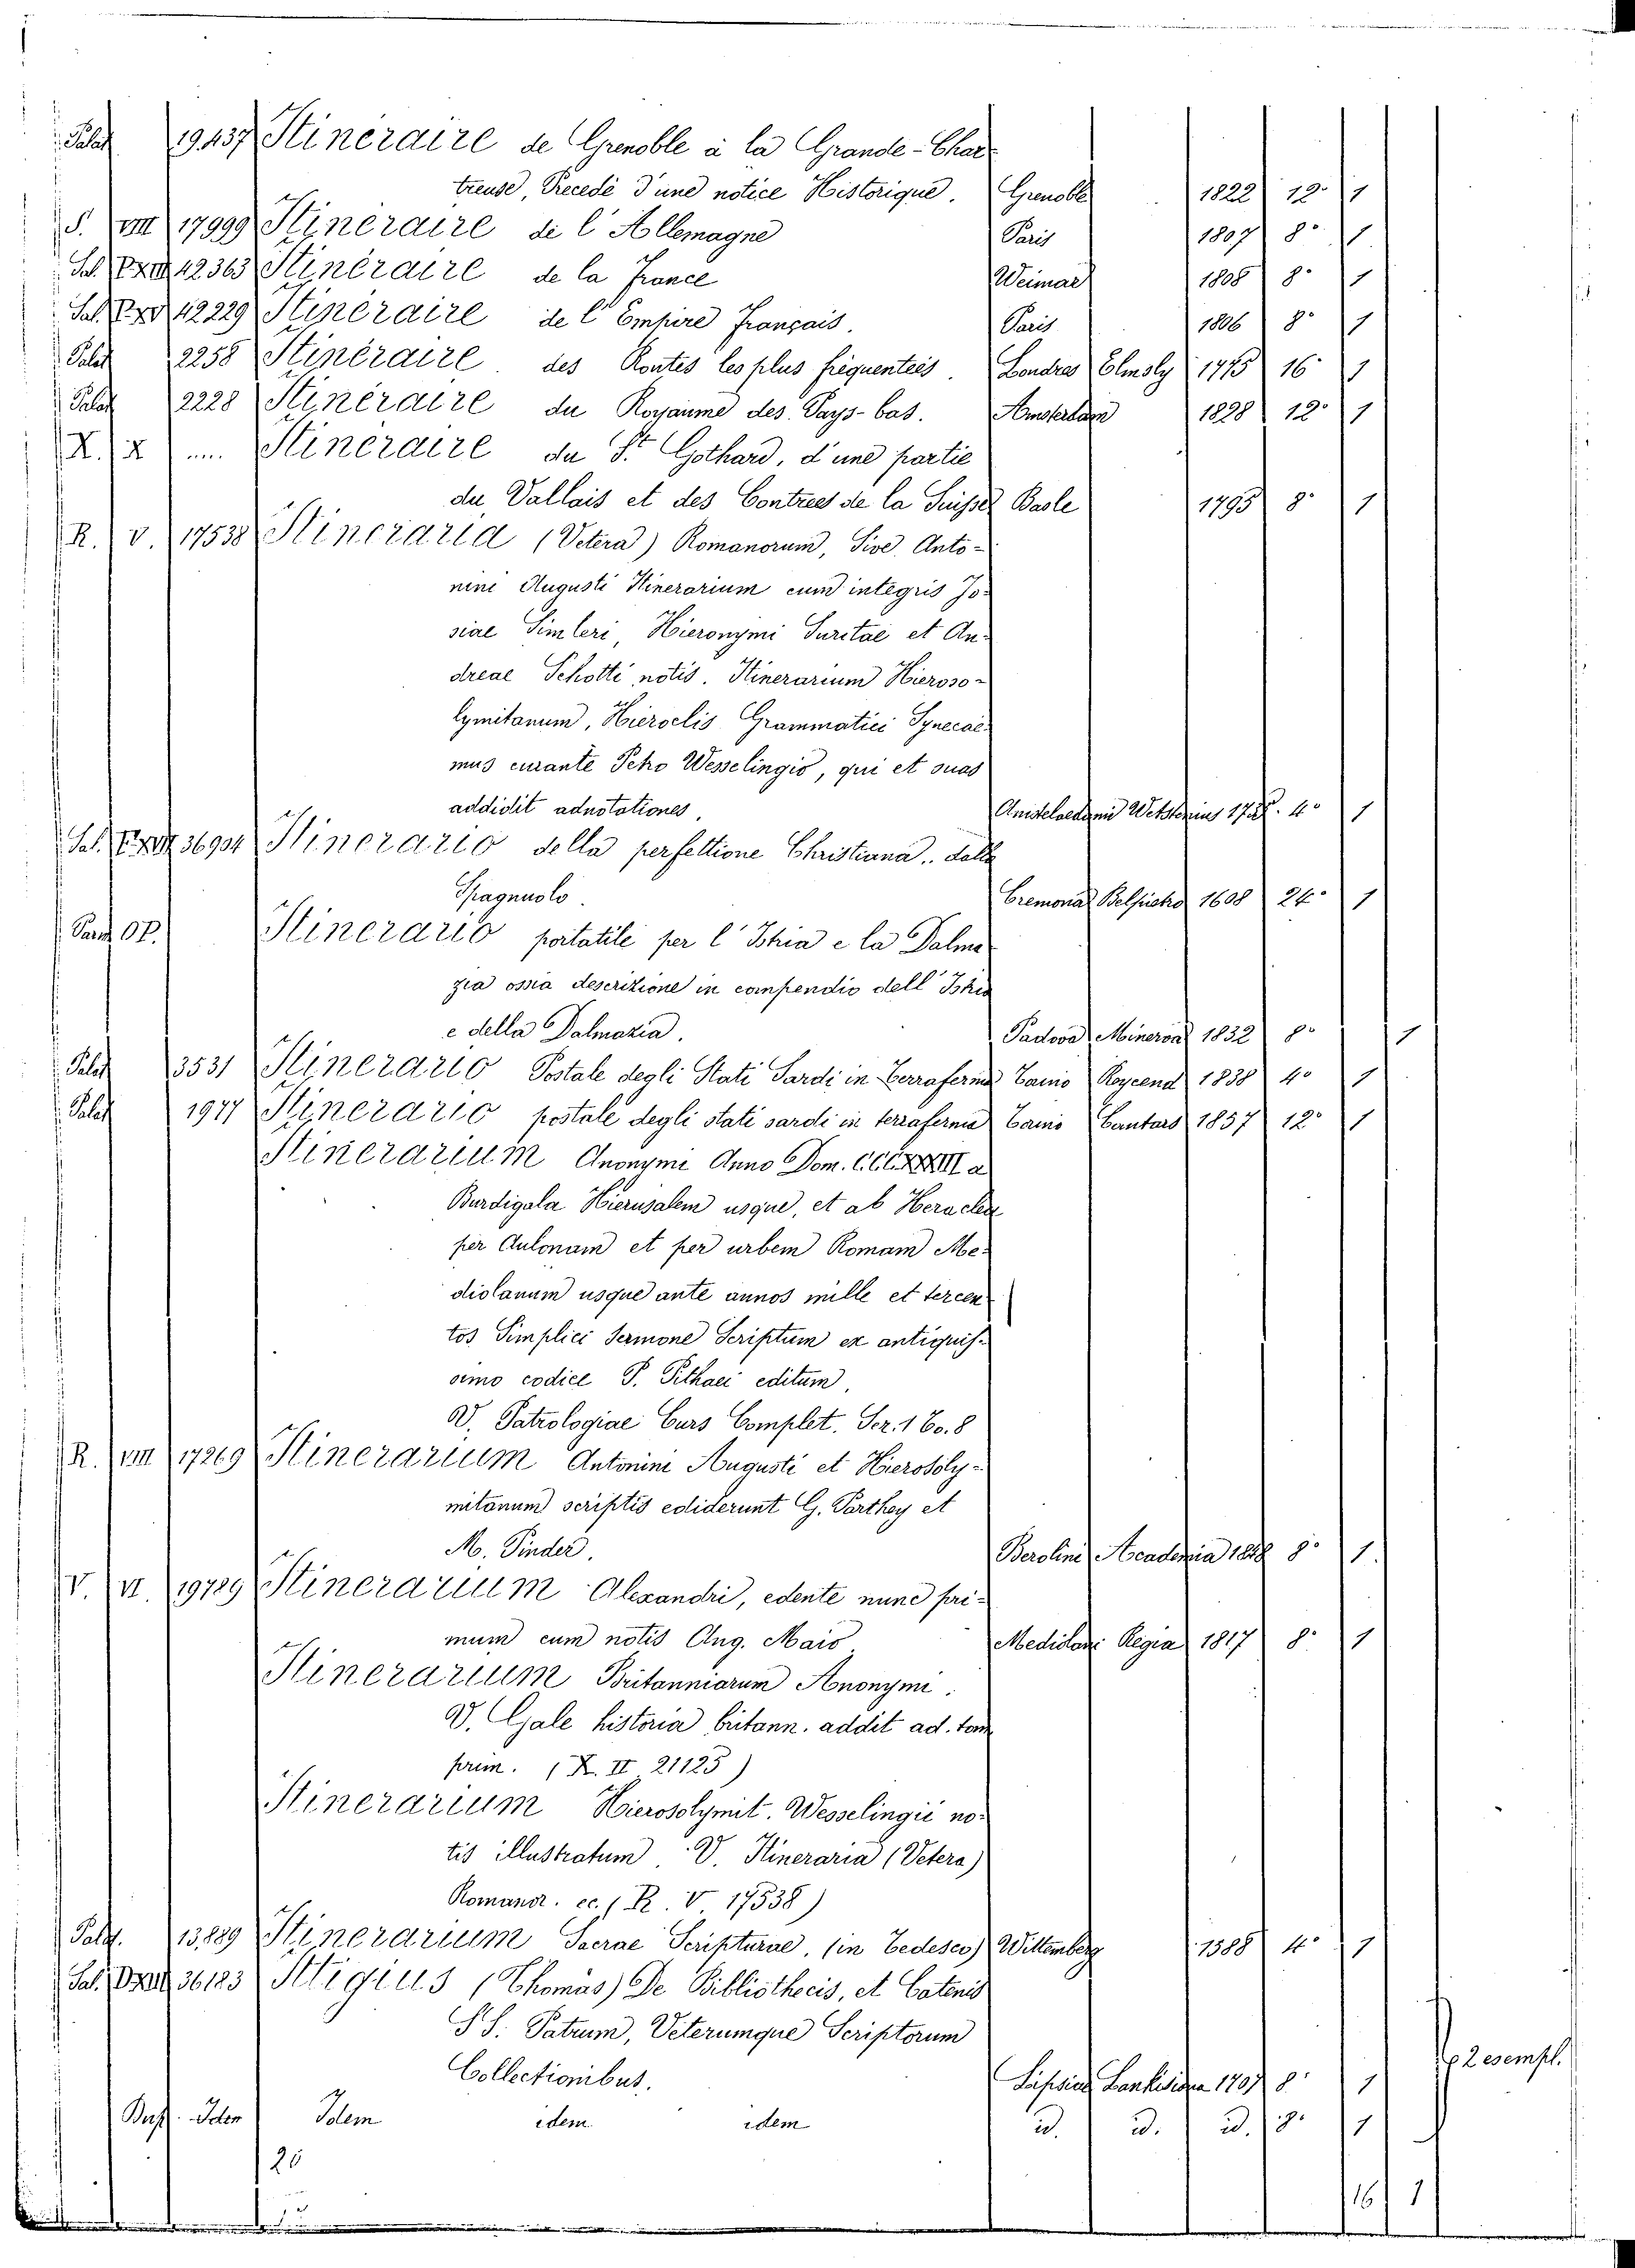 Palat 19437 Itinéraire de Grenoble à la Grande-Char
treuse, Precedé d'une notice Historique. Grenoble 1822 12° 1
S. VIII 17999 Itinéraire de l'Allemagne Paris 1807 8° 1
42363 Itinéraire de la France Weimar 1808 8° 1
42229 Itinéraire de l'Empire Français. Paris 1806 8° 1
Palat 2258 Itinéraire des Routes les plus fréquenteés. Londres Elmsly 1775 16° 1
Palat 2228 Itinéraire du Royaume des Pays-bas. Amsterdam 1828 12° 1
X. X .... Itinéraire du St. Gothard, d'une partie
du Vallais et des Contrees de la Suisse Basle 1795 8° 1
R. V. 17538 Itineraria (Vetera) Romanorum, Sive Anto-
nini Augusti Itinerarium cum integris Jo-
siae Simleri, Hieronymi Suritae et An-
dreae Schotti notis. Itinerarium Hieroso-
lymitanum, Hieroclis Grammatici Synecde-
mus curante Petro Wesselingio, qui et suas
addidit adnotationes. Amstelaedami Wetstenius 4° 1
36934 Itinerario della perfettione Christiana.. dallo
Spagnuolo. Cremona 1608 24° 1
OP. Itinerario portatile per l'Istria e la Dalma
zia ossia descrizione in compendio dell'Istria
e della Dalmazia. Padova Minerva 1832 8° 1
Palat 3531 Itinerario Postale degli Stati Sardi in Terraferma Torino Reycend 1838 4° 1
Palat 1977 Itinerario postale degli stati sardi in terraferma Torino 1837 12° 1
Itinerarium Anonymi Anno Dom. CCCXXXIII a
Burdigala Hierusalem usque, et ab Heraclea
per Aulonam et per urbem Romam Me-
diolanum usque ante annos mille et tercen
tos Simplici Sermone Scriptum ex antiquis-
simo codice P. Pithaei editum.
V. Patrologiae Curs Complet. Ser. 1 To. 8
R. VIII 17269 Itinerarium Antonini Augusti et Hierosoly-
mitanum scriptis ediderunt G. Parthey et
M. Pinder. Berolini Academia 1848 8° 1.
V. VI. 19789 Itinerarium Alexandri, edente nunc pri-
mum cum notis Ang. Maio. Mediolani Regia 1817 8° 1
Itinerarium Britanniarum Anonymi.
V. Gale historia britann. addit ad. tom
prim. (X. II. 21125)
Itinerarium Hierosolymit. Wesselingii no-
tis illustratum. V. Itineraria (Vetera)
Romanor. ec. (R. V. 17538)
Palat. 13889 Itinerarium Sacrae Scripturae, (in Tedesco) Wittemberg 1588 4° 1
36183 Ittigius (Thomas) De Bibliothecis, et Catenis
SS. Patrum, Veterumque Scriptorum
Collectionibus. Lipsiae Lankisiana 1707 8° 1
2 esempl.
Idem Idem idem idem id. id. id. 8° 1
20
16 1